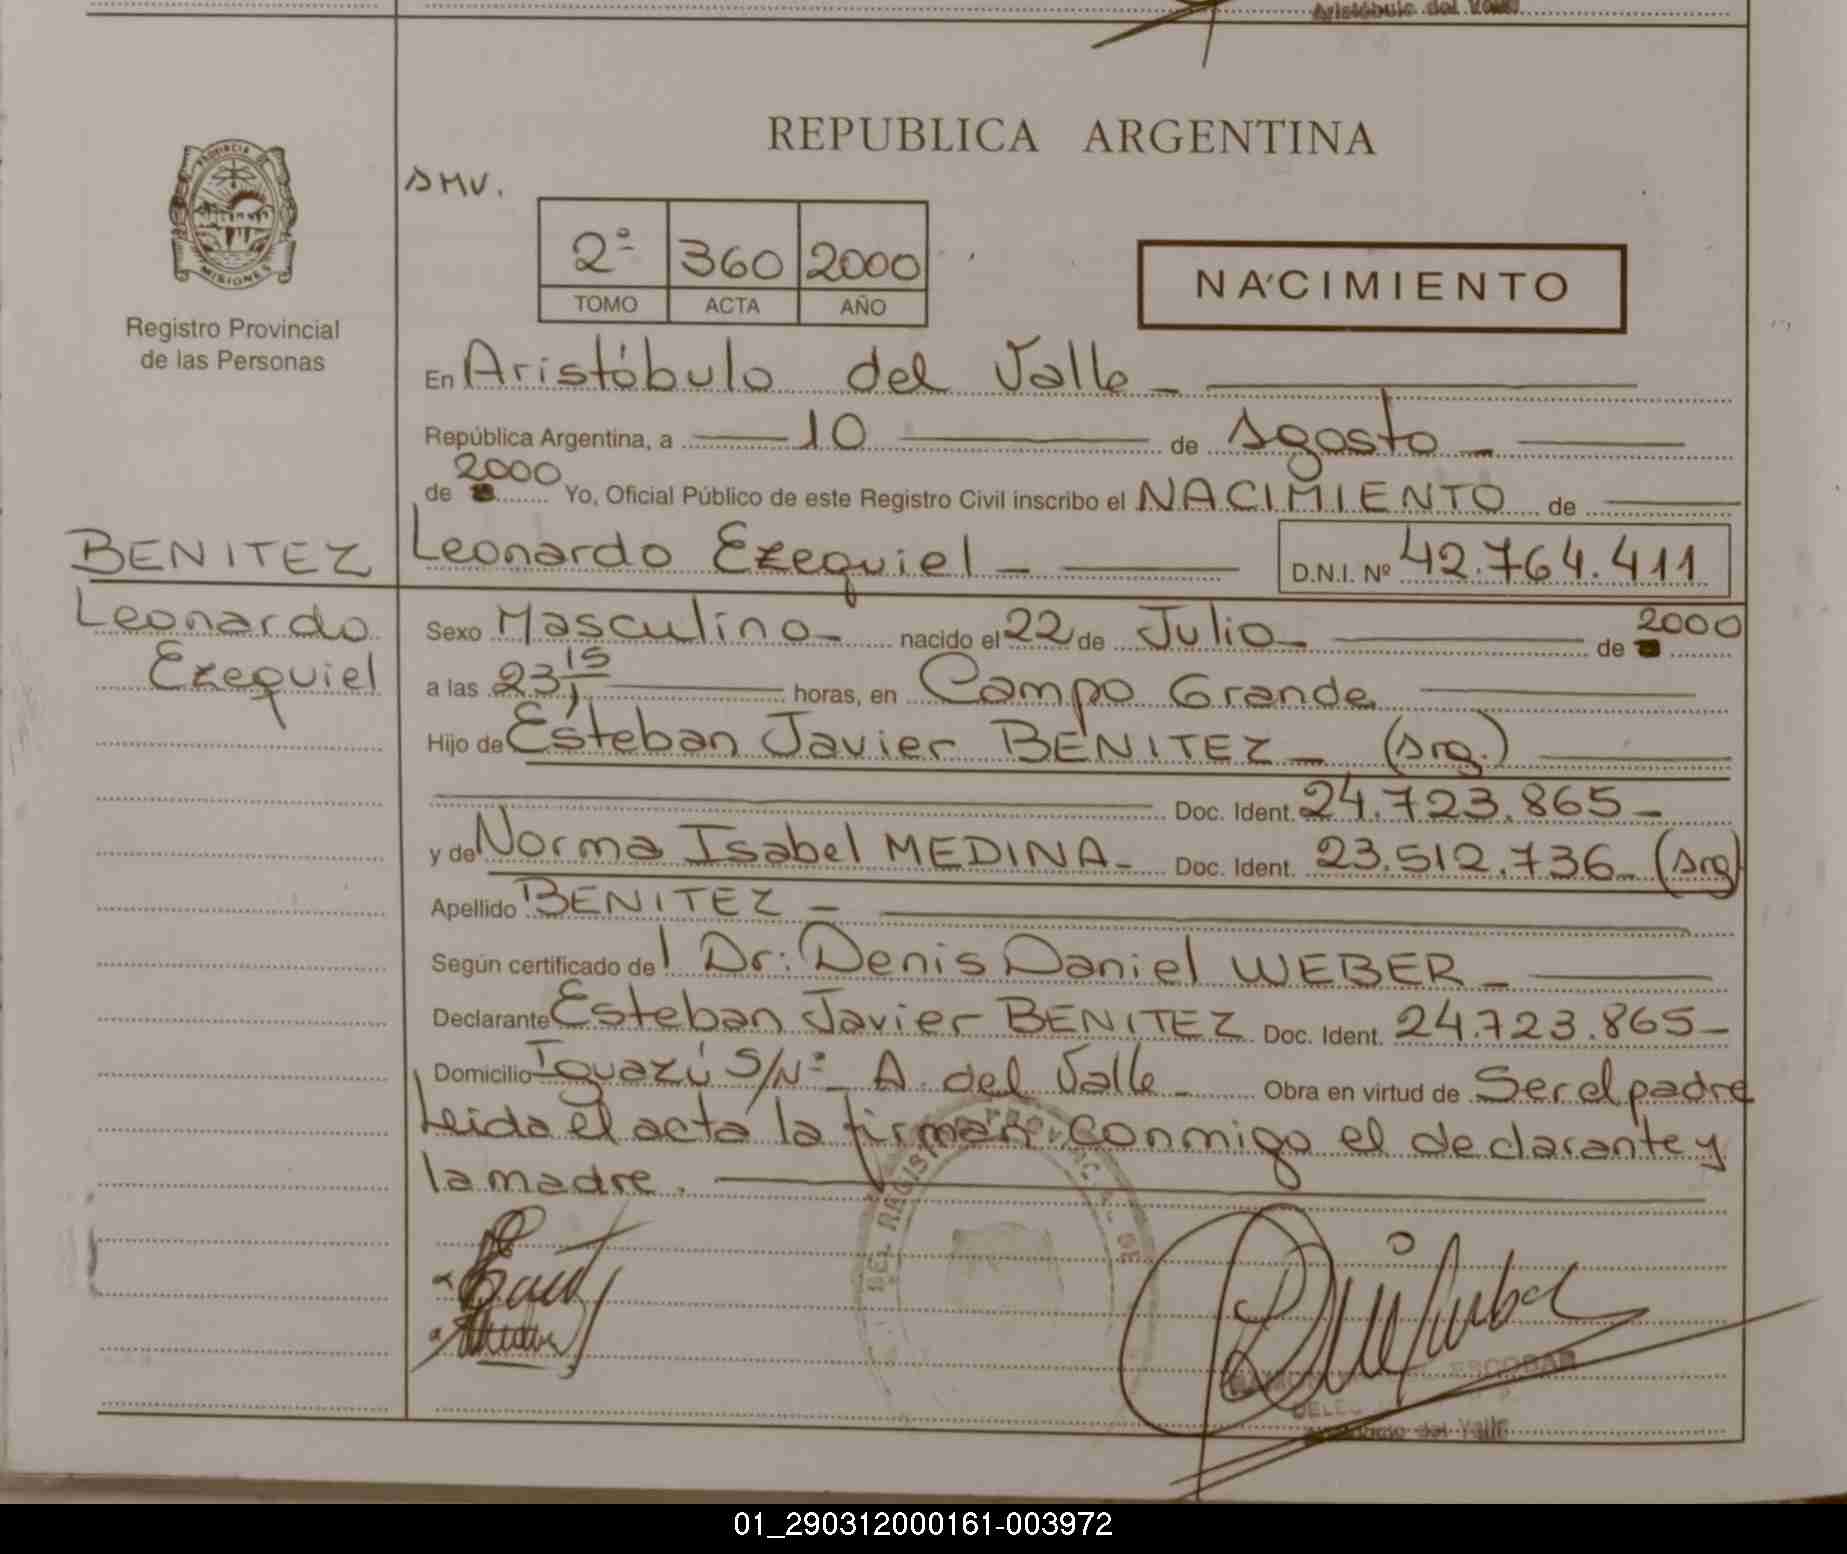 Aristóbulo del Valle
REPUBLICA ARGENTINA
PROVINCIA DE
MISIONES
SMV.
2º 360 2000
TOMO ACTA AÑO
NACIMIENTO
Registro Provincial
de las Personas
En Aristóbulo del Valle
República Argentina, a 10 de Agosto
de 2000 Yo, Oficial Público de este Registro Civil inscribo el NACIMIENTO de
BENITEZ Leonardo Ezequiel D.N.I. Nº 42.764.411
Leonardo
Ezequiel
Sexo Masculino nacido el 22 de Julio de 2000
a las 23,15 horas, en Campo Grande
Hijo de Esteban Javier BENITEZ (Arg.)
Doc. Ident. 24.723.865
y de Norma Isabel MEDINA Doc. Ident. 23.512.736 (Arg)
Apellido BENITEZ
Según certificado del Dr: Denis Daniel WEBER
Declarante Esteban Javier BENITEZ Doc. Ident. 24.723.865
Domicilio Iguazú S/Nº A. del Valle Obra en virtud de Ser el padre
Leida el acta la firman conmigo el declarante y
la madre.
DEL REGISTRO DE
ESCOBAR
del Valle
01_290312000161-003972